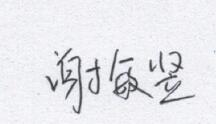 谢敏坚